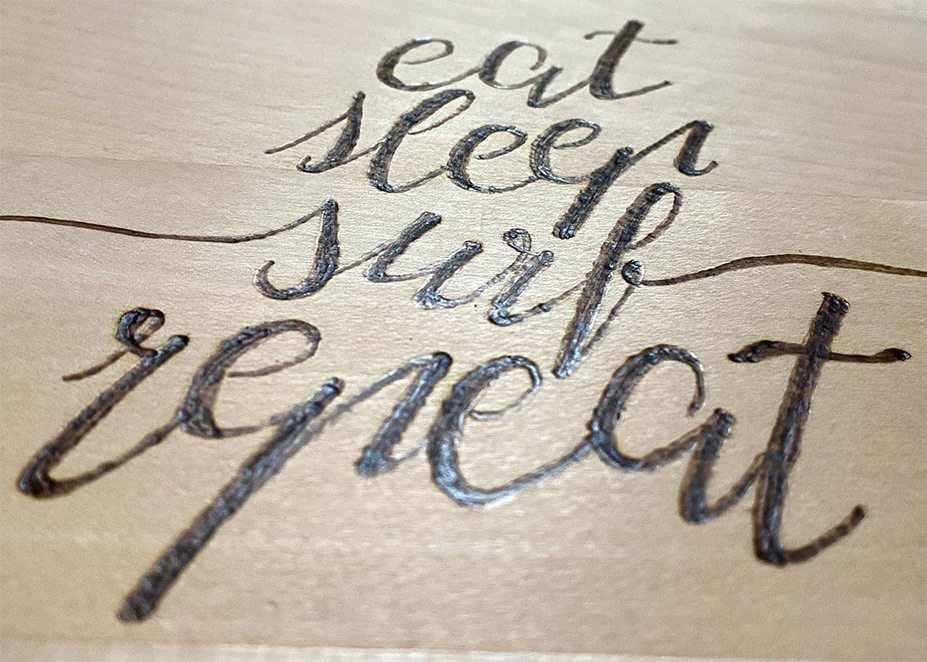 eat
sleep
surf
repeat